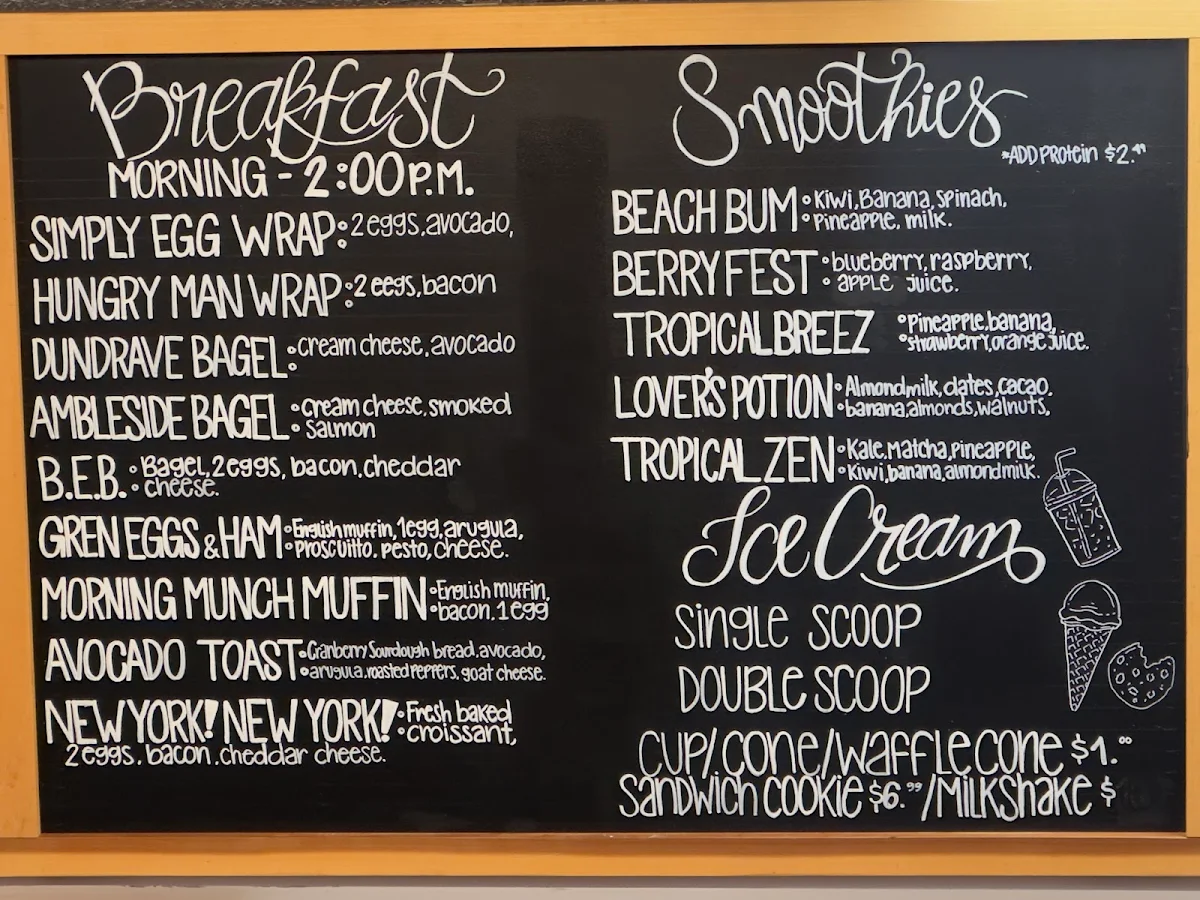 Breakfast
MORNING - 2:00 P.M.
SIMPLY EGG WRAP: 2 eggs, avocado,
HUNGRY MAN WRAP: 2 eegs, bacon
DUNDRAVE BAGEL: cream cheese, avocado
AMBLESIDE BAGEL: cream cheese, smoked
Salmon
B.E.B.: Bagel, 2 eggs, bacon, cheddar
cheese.
GREN EGGS & HAM: English muffin, 1 egg, arugula,
Proscuitto. pesto, cheese.
MORNING MUNCH MUFFIN: English muffin,
bacon, 1 egg
AVOCADO TOAST: Cranberry Sourdough bread, avocado,
arugula, roasted Peppers, goat cheese.
NEW YORK! NEW YORK!: Fresh baked
croissant,
2 eggs. bacon. cheddar cheese.
Smoothies
*ADD PROtein $2.
BEACH BUM: Kiwi, Banana, spinach,
Pineapple, milk.
BERRY FEST: blueberry, raspberry,
apple juice.
TROPICAL BREEZ: Pineapple, banana,
strawberry, orange juice.
LOVER'S POTION: Almond milk, dates, cacao.
banana, almonds, walnuts,
TROPICAL ZEN: Kale, Matcha, pineapple,
Kiwi, banana, almond milk.
Ice Cream
Single SCOOP
DOUBLE SCOOP
CUP/CONE/WAFFLE CONE $1.00
Sandwich COOKIE $6.99/MILKShake $